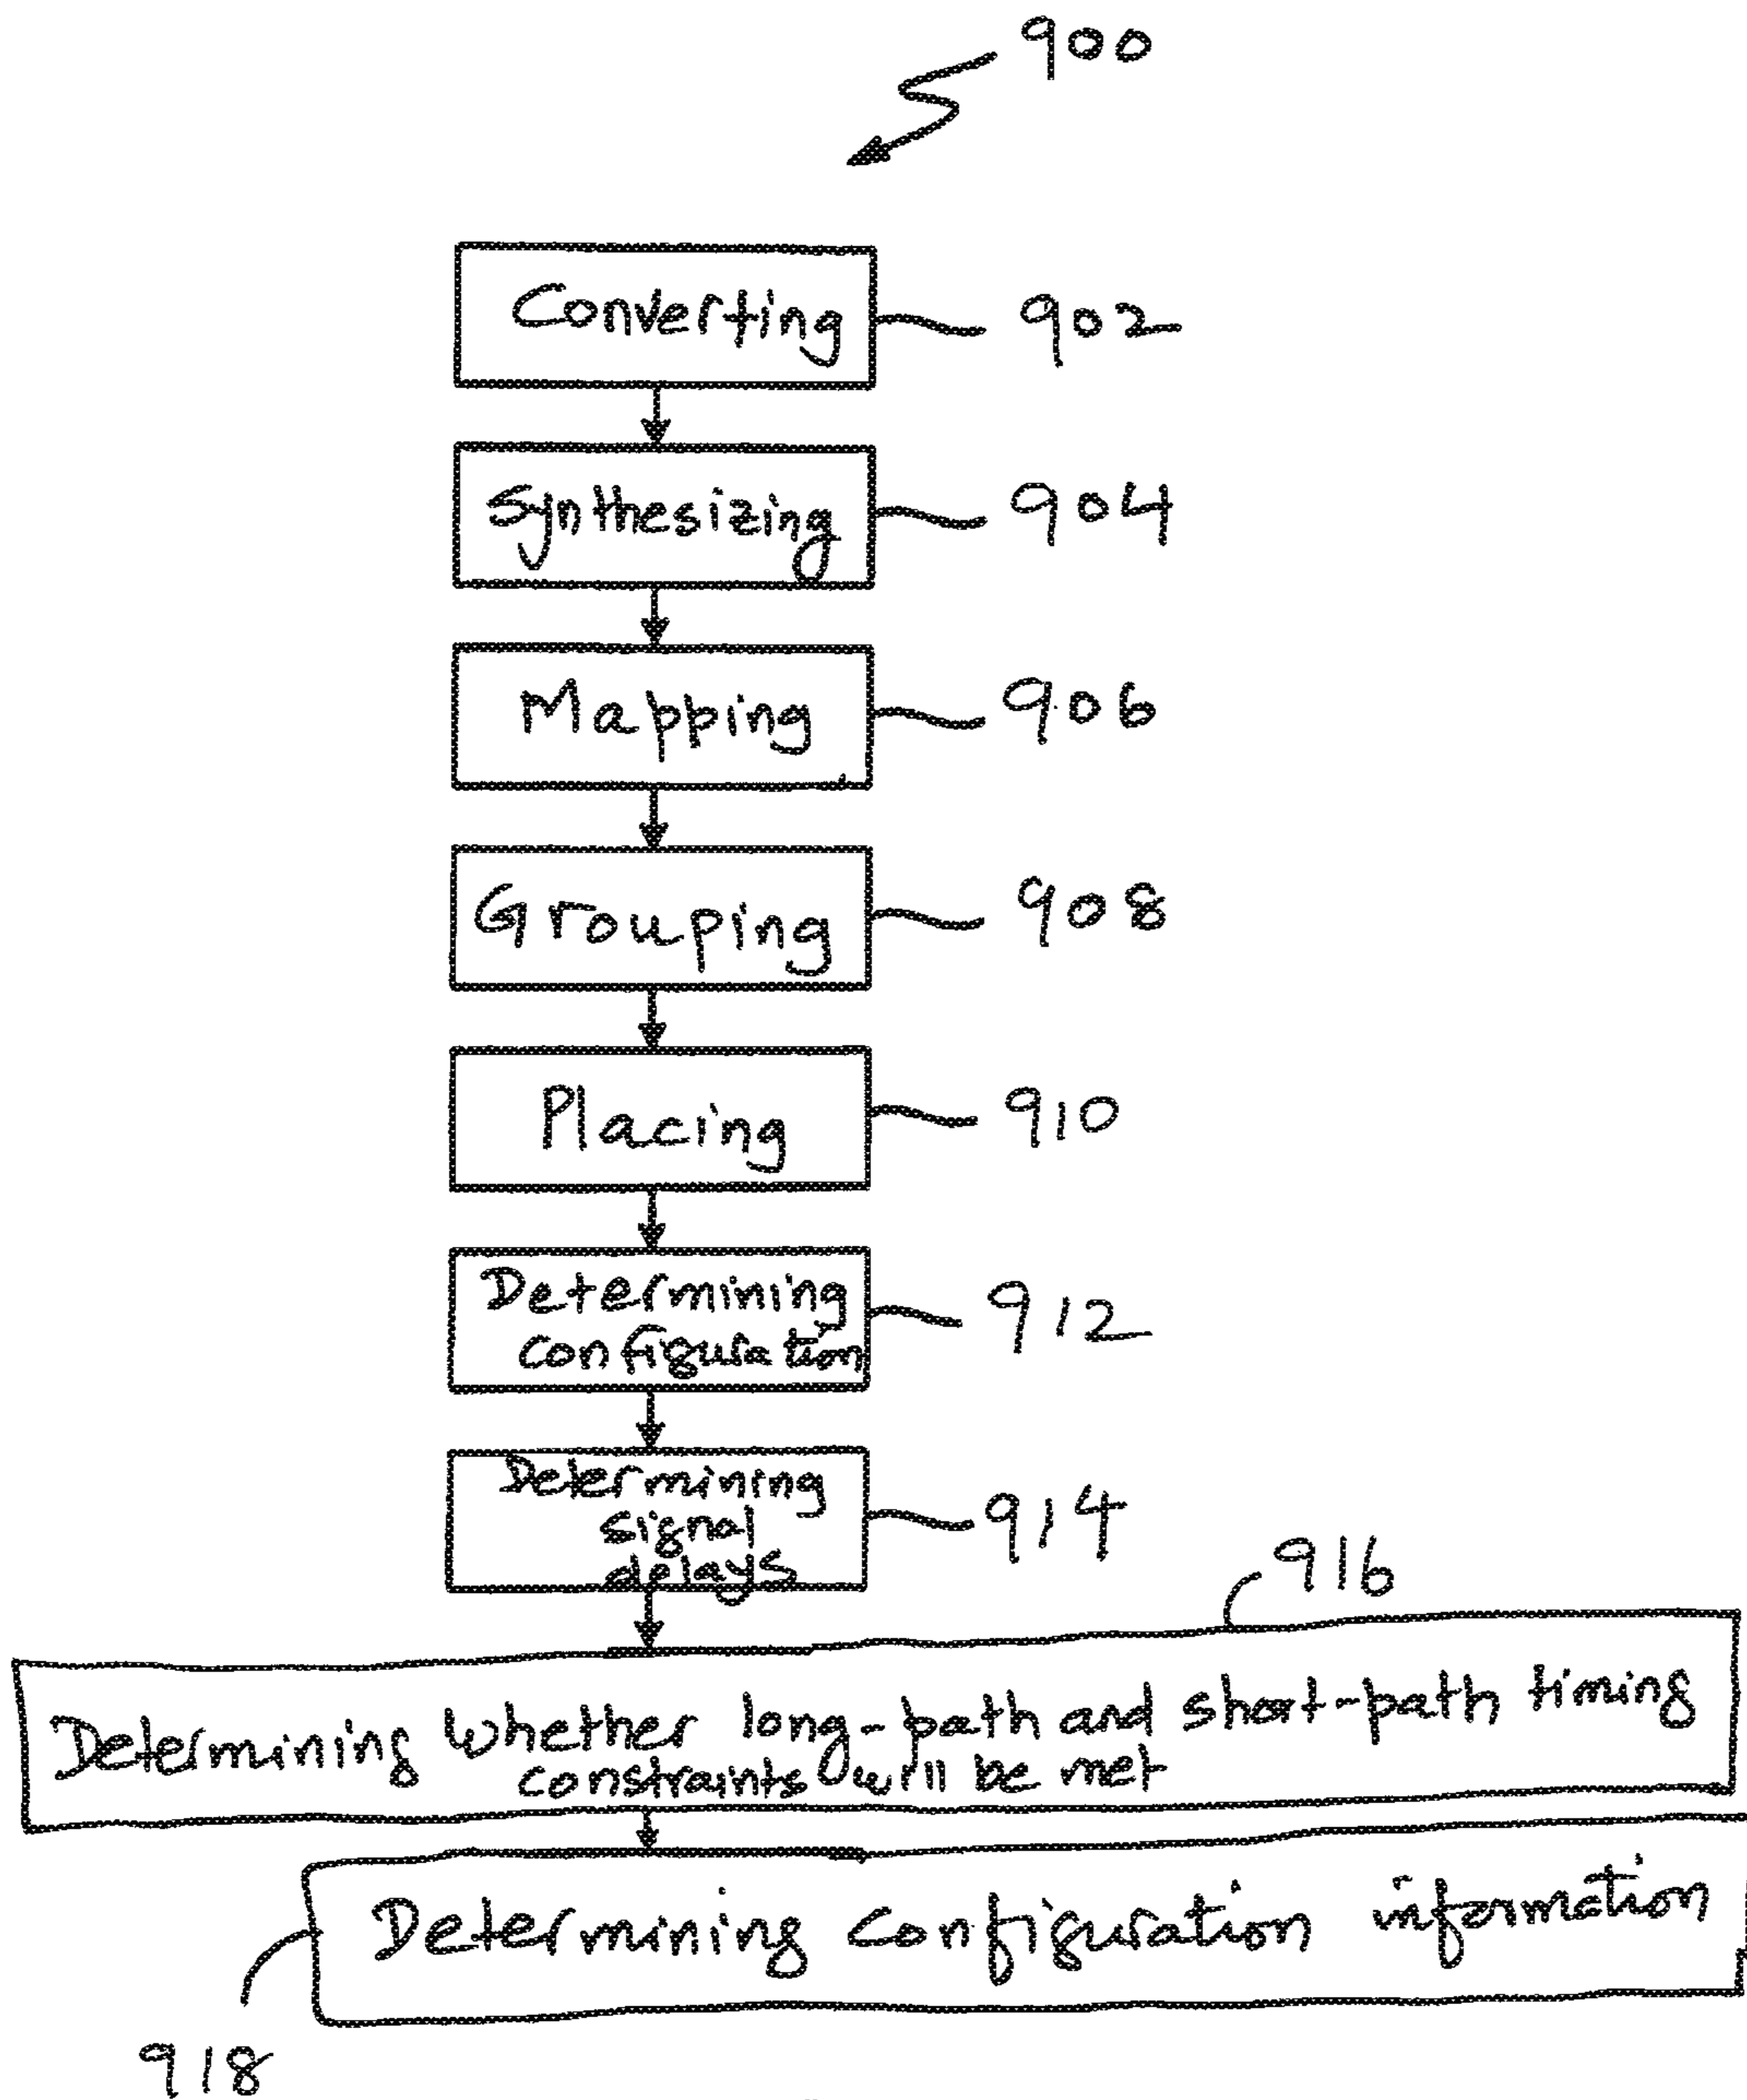 900
Converting 902
Synthesizing 904
Mapping 906
Grouping 908
Placing 910
Determining 912
configuration
Determining
signal 914
delays
916
Determining whether long-path and short-path timing
constraints will be met
Determining configuration information
918